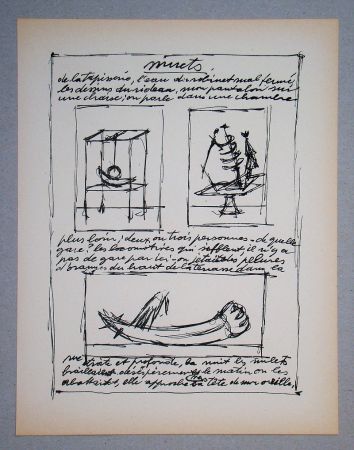 muets,
de la tapisserie, l'eau du robinet mal fermé,
les dessins du rideau, mon pantalon sur
une chaise; on parle dans une chambre
plus loin; deux ou trois personnes - de quelle
gare? les locomotives qui sifflent, il n'y a
pas de gare par ici - on jetait des pelures
d'oranges du haut de la terrasse dans la
rue étroite et profonde, la nuit les mulets
braillaient désespérément le matin on les
abattait, elle approche sa tête de mon oreille,